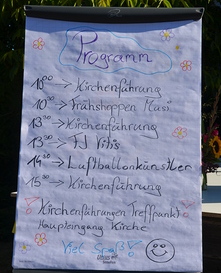 Programm
10°° → Kirchenführung
10³⁰ → Frühshoppen Musi
13°° → Kirchenführung
13³⁰ → JJ Vitis
14³⁰ → Luftballonkünstler
15³⁰ → Kirchenführung
! Kirchenführungen Treffpunkt !
Haupteingang Kirche
Viel Spaß !